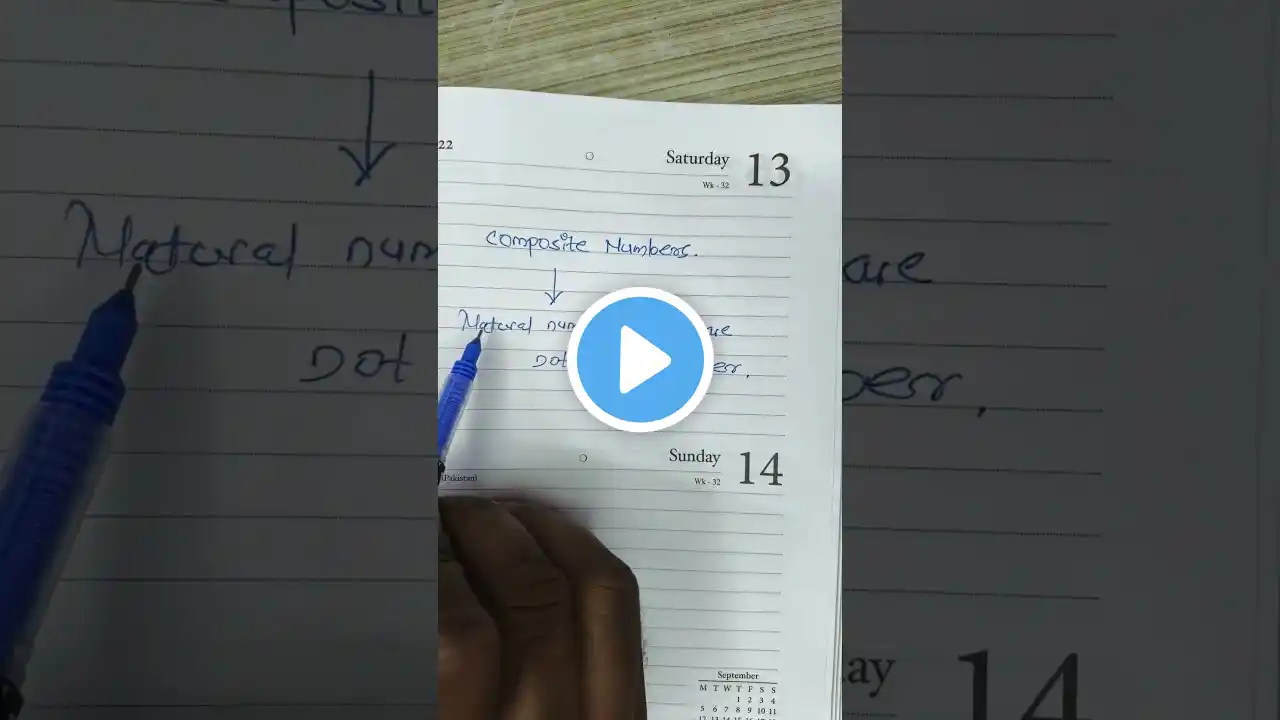 22
Saturday 13
Wk - 32
Composite Numbers.
Natural num are
not ber.
Sunday 14
Wk - 32
(Pakistan)
September
M T W T F S S
1 2 3 4
5 6 7 8 9 10 11
12 13 14 15 16 17 18